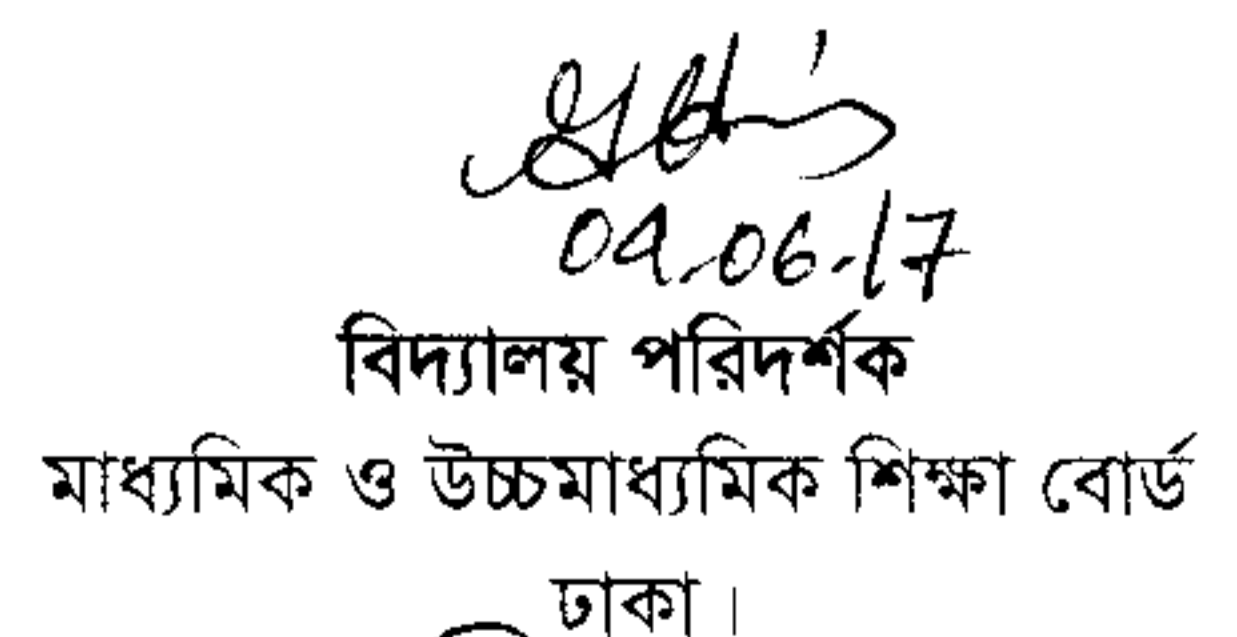 04-06-17
বিদ্যালয় পরিদর্শক
মাধ্যমিক ও উচ্চমাধ্যমিক শিক্ষা বোর্ড
ঢাকা।